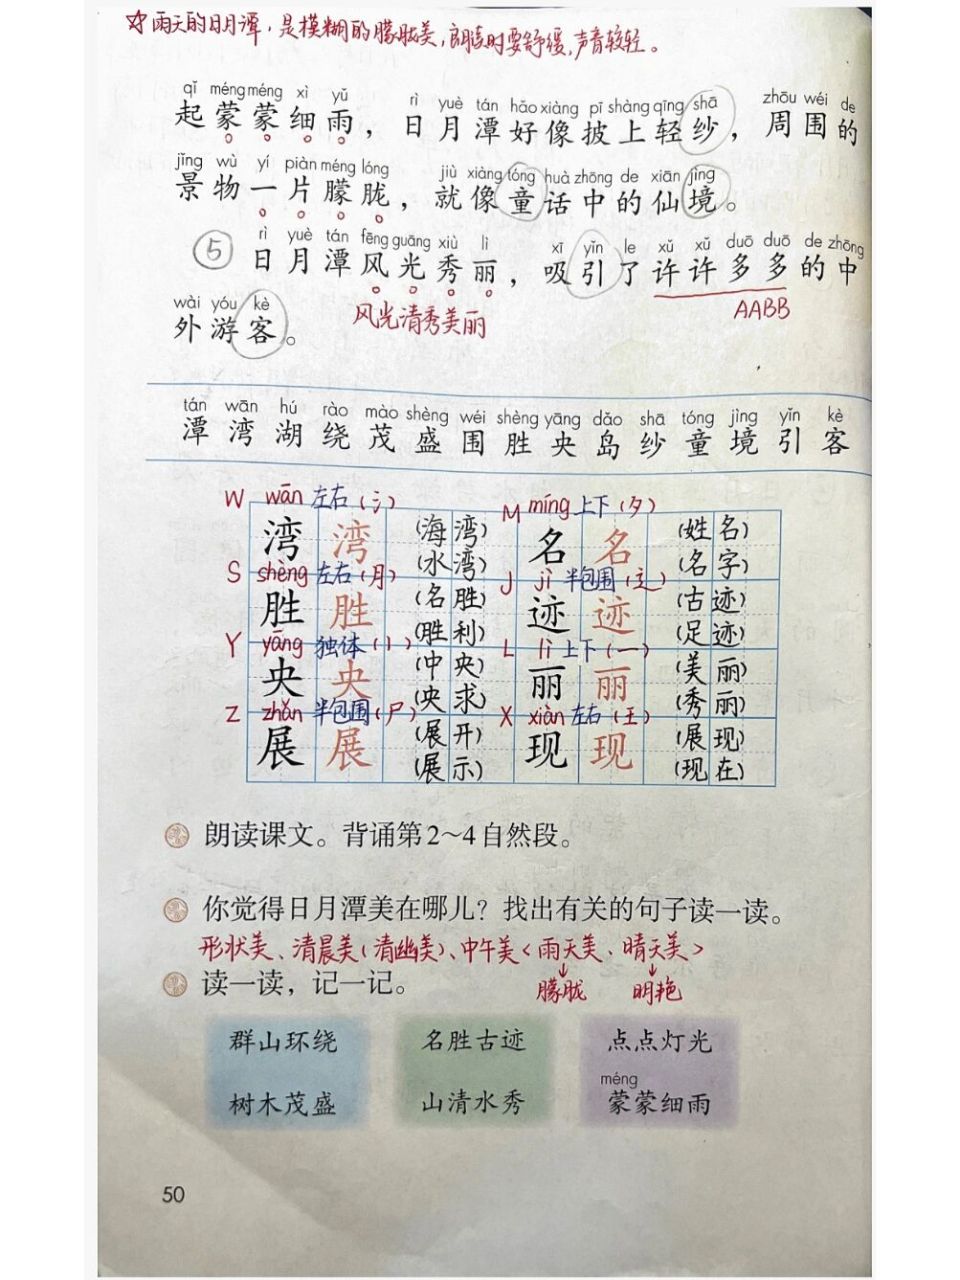 ☆雨天的日月潭，是模糊的朦胧美，朗读时要舒缓，声音较轻。
qǐ méng méng xì yǔ rì yuè tán hǎo xiàng pī shàng qīng shā zhōu wéi de
起蒙蒙细雨，日月潭好像披上轻纱，周围的
jǐng wù yí piàn méng lóng jiù xiàng tóng huà zhōng de xiān jìng
景物一片朦胧，就像童话中的仙境。
rì yuè tán fēng guāng xiù lì xī yǐn le xǔ xǔ duō duō de zhōng
⑤日月潭风光秀丽，吸引了许许多多的中
wài yóu kè
外游客。
风光清秀美丽 AABB
tán wān hú rào mào shèng wéi shèng yāng dǎo shā tóng jìng yǐn kè
潭 湾 湖 绕 茂 盛 围 胜 央 岛 纱 童 境 引 客
W wān 左右（氵） M míng 上下（夕）
湾 湾 （海湾） 名 名 （姓名）
（水湾） （名字）
S shèng 左右（月） J jì 半包围（辶）
胜 胜 （名胜） 迹 迹 （古迹）
（胜利） （足迹）
Y yāng 独体（丨） L lì 上下（一）
央 央 （中央） 丽 丽 （美丽）
（央求） （秀丽）
Z zhǎn 半包围（尸） X xiàn 左右（王）
展 展 （展开） 现 现 （展现）
（展示） （现在）
朗读课文。背诵第2～4自然段。
你觉得日月潭美在哪儿？找出有关的句子读一读。
形状美、清晨美（清幽美）、中午美＜雨天美、晴天美＞
↓ ↓
朦胧 明艳
读一读，记一记。
群山环绕 名胜古迹 点点灯光
méng
树木茂盛 山清水秀 蒙蒙细雨
50